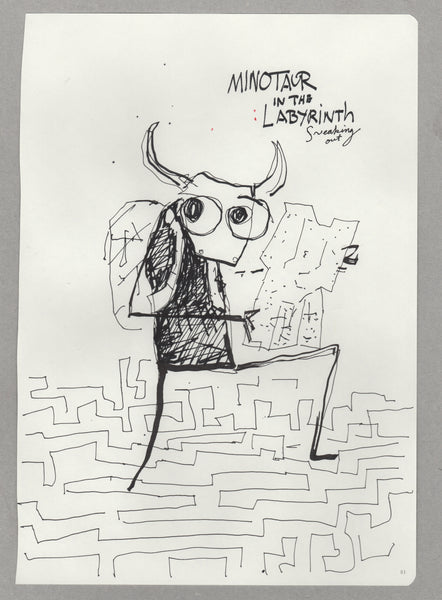 MINOTAUR
IN THE
LABYRINTH
Sneaking
out